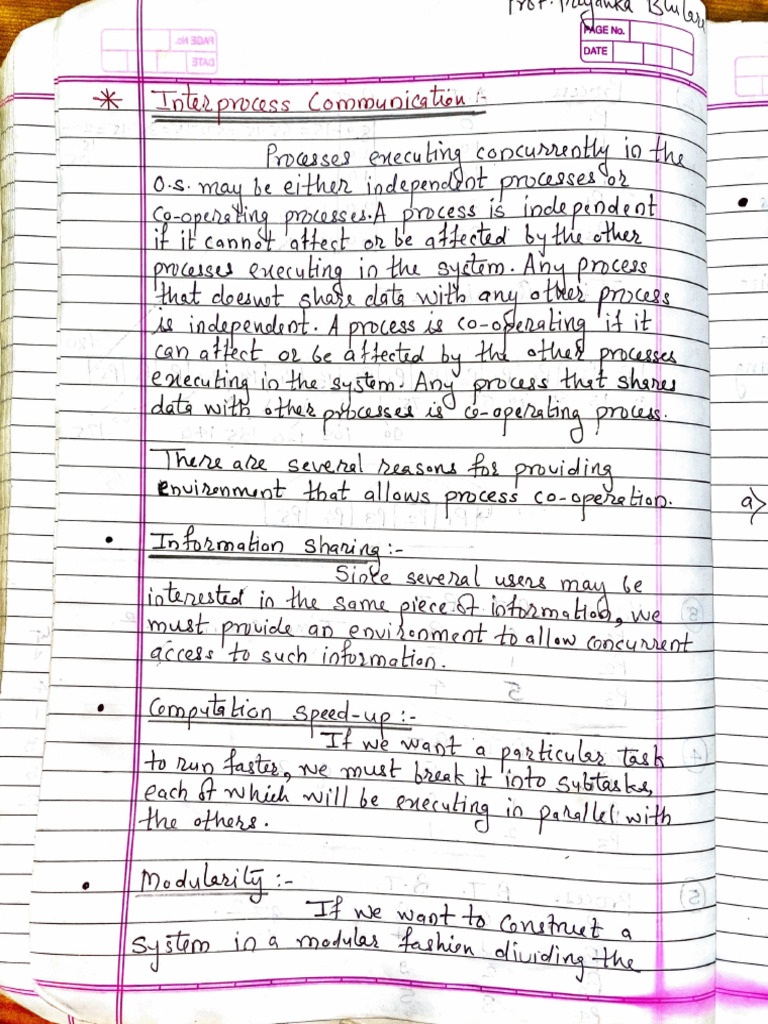 Prof. Priyanka
PAGE No.
DATE
* Interprocess Communication :-
Processes executing concurrently in the
O.S. may be either independent processes or
co-operating processes. A process is independent
if it cannot affect or be affected by the other
processes executing in the system. Any process
that doesnot share data with any other process
is independent. A process is co-operating if it
can affect or be affected by the other processes
executing in the system. Any process that shares
data with other processes is co-operating process.
There are several reasons for providing
environment that allows process co-operation.
• Information Sharing :-
Sinle several users may be
interested in the same piece of information, we
must provide an environment to allow concurrent
access to such information.
• Computation Speed-up :-
If we want a particular task
to run faster, we must break it into subtasks,
each of which will be executing in parallel with
the others.
• Modularity :-
If we want to construct a
system in a modular fashion dividing the
a)